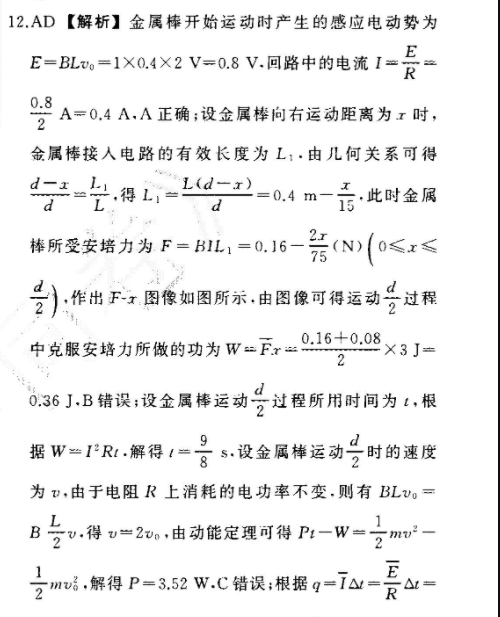 12.AD 【解析】金属棒开始运动时产生的感应电动势为
E=BLv₀=1×0.4×2 V=0.8 V,回路中的电流 I=E/R=
0.8/2 A=0.4 A,A 正确;设金属棒向右运动距离为 x 时,
金属棒接入电路的有效长度为 L₁,由几何关系可得
(d-x)/d=L₁/L,得 L₁=L(d-x)/d=0.4 m-x/15,此时金属
棒所受安培力为 F=BIL₁=0.16-2x/75(N)(0≤x≤
d/2),作出 F-x 图像如图所示,由图像可得运动 d/2 过程
中克服安培力所做的功为 W=F̅x=(0.16+0.08)/2×3 J=
0.36 J,B 错误;设金属棒运动 d/2 过程所用时间为 t,根
据 W=I²Rt,解得 t=9/8 s,设金属棒运动 d/2 时的速度
为 v,由于电阻 R 上消耗的电功率不变,则有 BLv₀=
B L/2 v,得 v=2v₀,由动能定理可得 Pt-W=1/2mv²-
1/2mv₀²,解得 P=3.52 W,C 错误;根据 q=I̅Δt=E̅/RΔt=